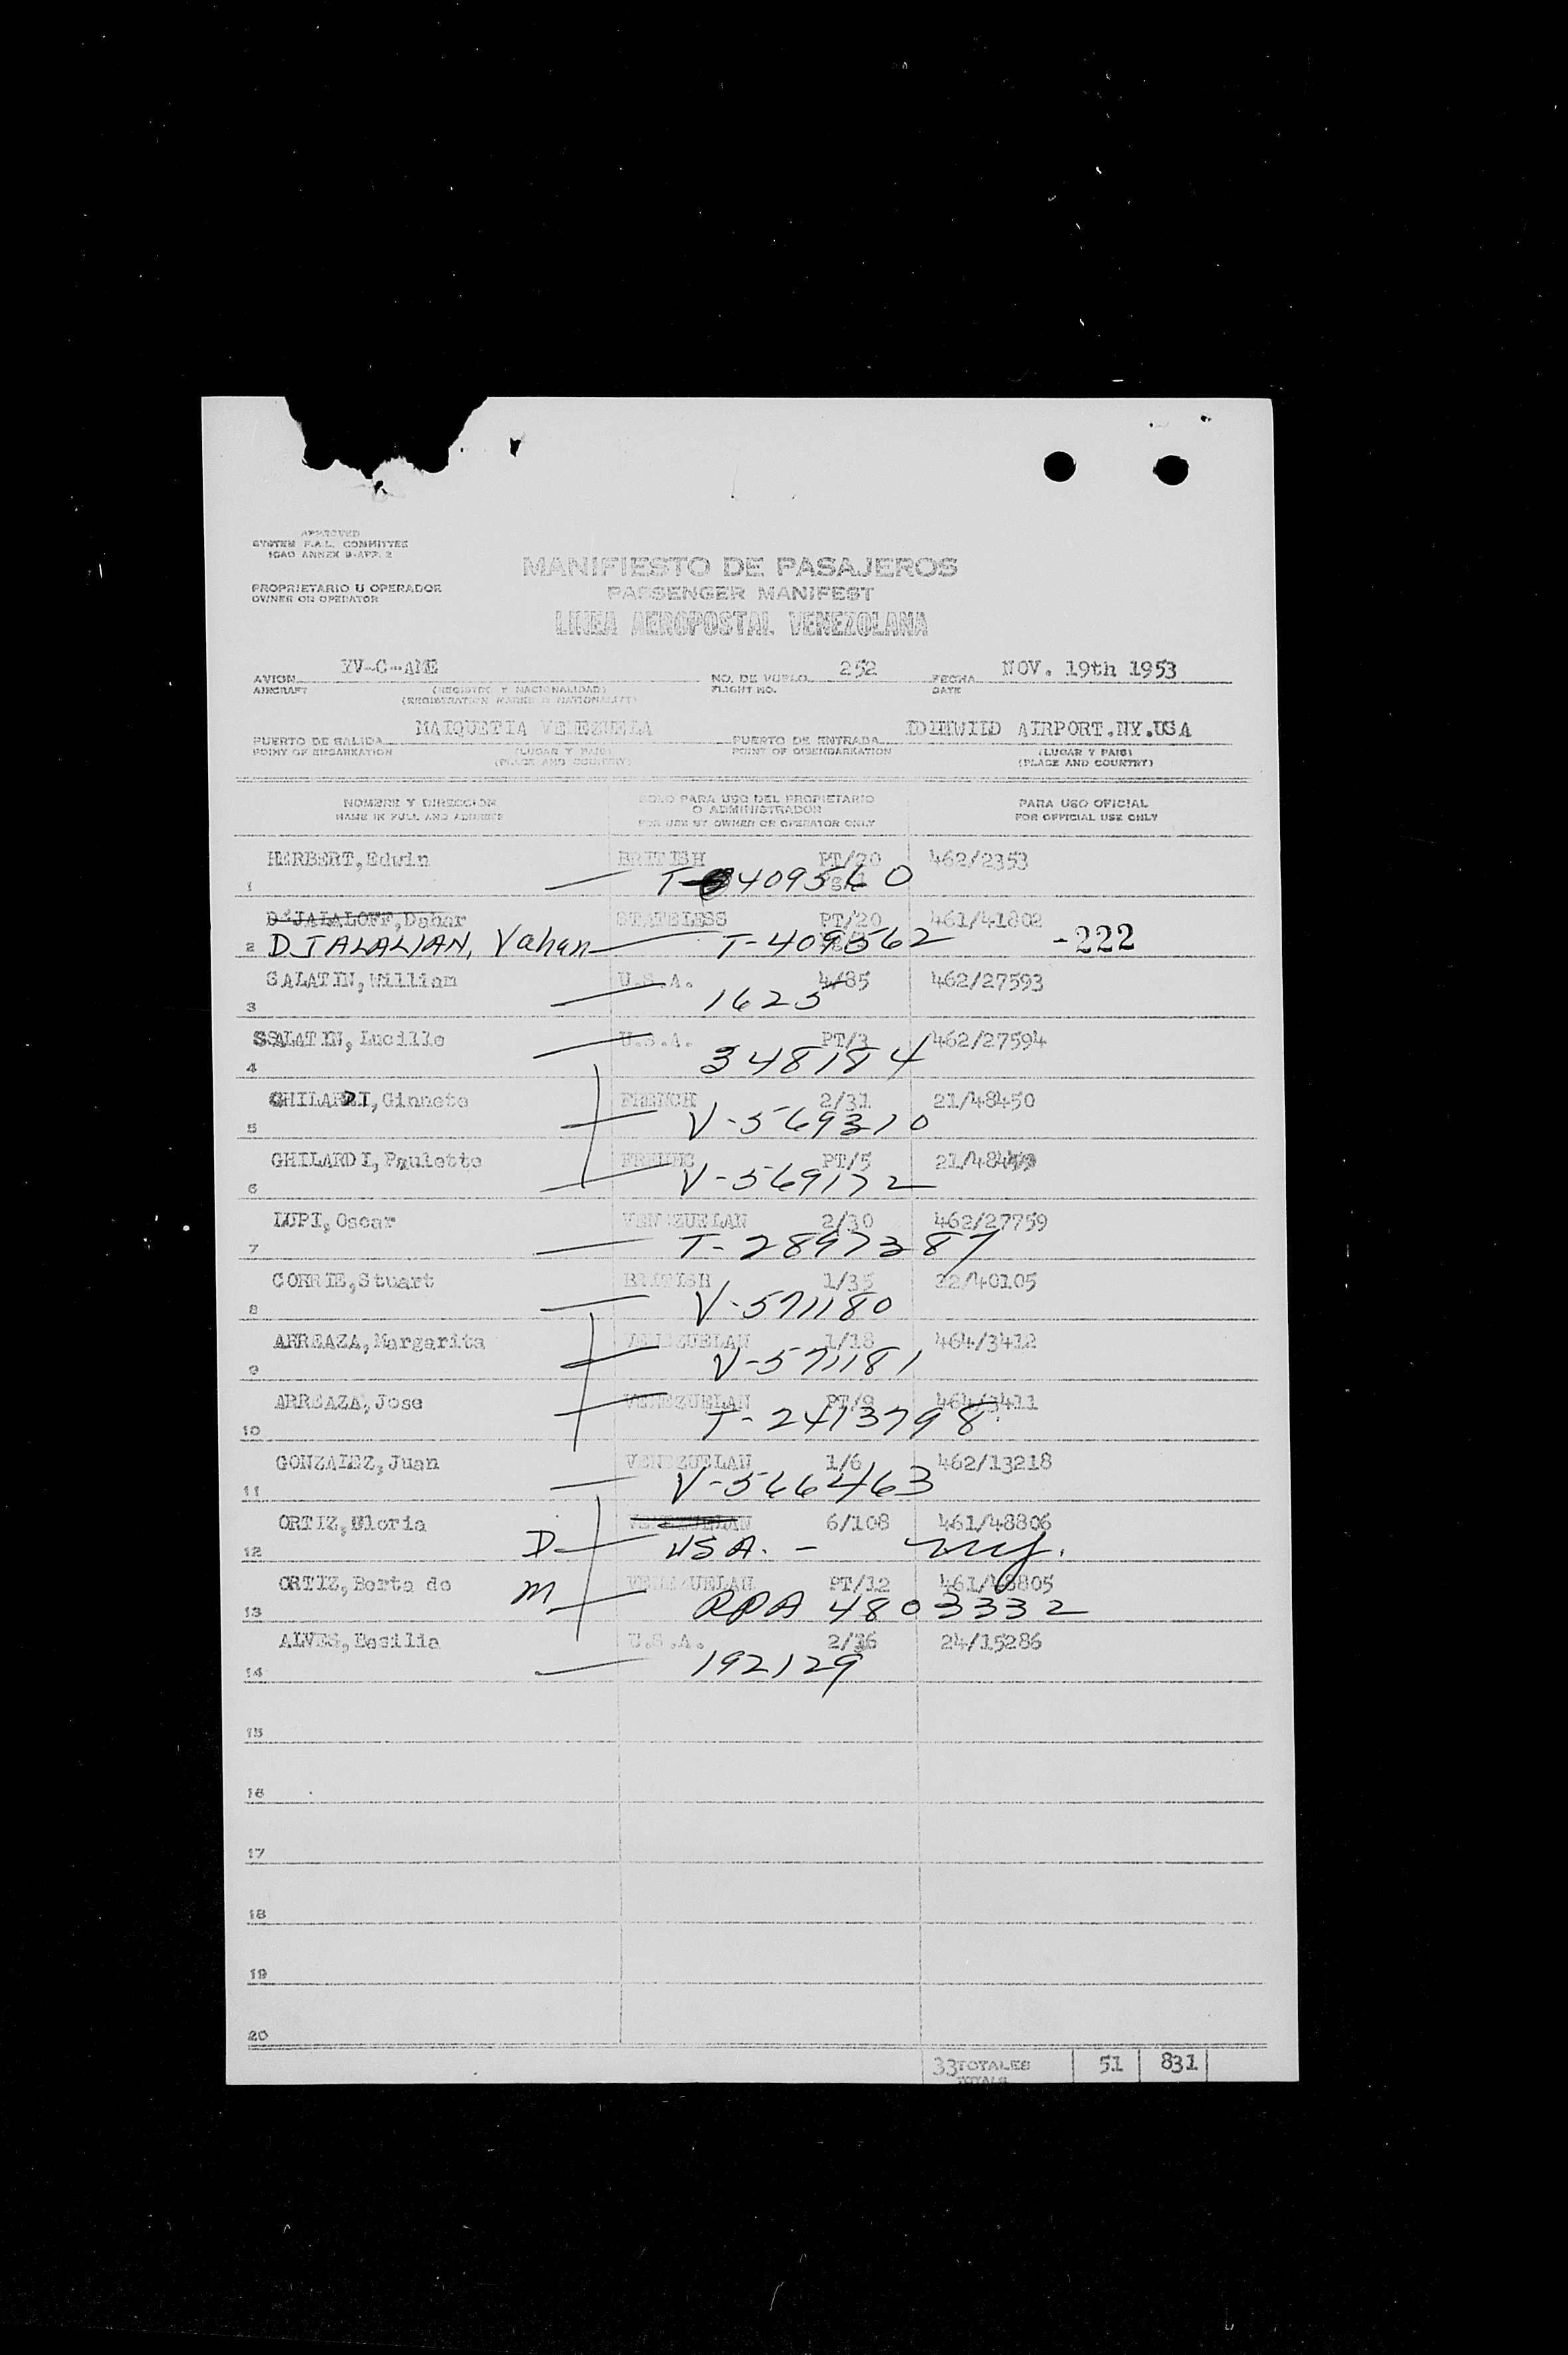 APPROVED
SYSTEM F.A.L. COMMITTEE
ICAO ANNEX 9-APP. 2
MANIFIESTO DE PASAJEROS
PROPRIETARIO U OPERADOR
OWNER OR OPERATOR
PASSENGER MANIFEST
LINEA AEROPOSTAL VENEZOLANA
AVION YV-C-AME NO. DE VUELO 252 FECHA NOV. 19th 1953
AIRCRAFT (REGISTRO Y NACIONALIDAD) FLIGHT NO. DATE
(REGISTRATION MARKS & NATIONALITY)
PUERTO DE SALIDA MAIQUETIA VENEZUELA PUERTO DE ENTRADA IDIEWILD AIRPORT.NY.USA
POINT OF EMBARKATION (LUGAR Y PAIS) POINT OF DISEMBARKATION (LUGAR Y PAIS)
(PLACE AND COUNTRY) (PLACE AND COUNTRY)
NOMBRE Y DIRECCION SOLO PARA USO DEL PROPIETARIO O ADMINISTRADOR PARA USO OFICIAL
NAME IN FULL AND ADDRESS FOR USE BY OWNER OR OPERATOR ONLY FOR OFFICIAL USE ONLY
HERBERT,Edwin BRITISH PT/20 462/2353
1 — T-409560
D'JALALOFF,Dahar STATELESS PT/20 461/41802
2 DJALALIAN, Vahan — T-409562 -222
SALATIN,William U.S.A. 4/85 462/27593
3 — 1625
SSALATIN, Lucille U.S.A. PT/3 462/27594
4 — 348184
GHILARDI,Ginnete FRENCH 2/31 21/48450
5 — V-569310
GHILARDI,Paulette FRENHC PT/5 21/48449
6 — V-569172
LUPI,Oscar VENEZUELAN 2/30 462/27759
7 — T-2897387
CORRIE,Stuart BRITISH 1/35 22/40105
8 — V-571180
ARREAZA,Margarita VENEZUELAN 1/18 464/3412
9 — V-571181
ARREAZA,Jose VENEZUELAN PT/9 464/3411
10 — T-2413798
GONZALEZ,Juan VENEZUELAN 1/6 462/13218
11 — V-566463
ORTIZ,Gloria VENEZUELAN 6/108 461/48806
12 D — USA. - ny.
ORTIZ,Berta de VENEZUELAN PT/12 461/48805
13 M — RPA 4803332
ALVES,Basilia U.S.A. 2/36 24/15286
14 — 192129
15
16
17
18
19
20
33 TOTALES 51 831
TOTALS